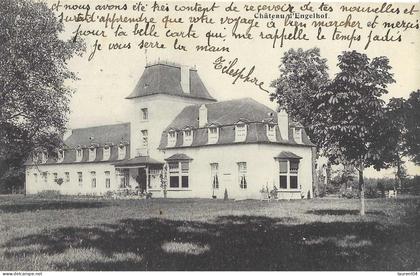 Et moi aussi j'ai été très content de recevoir de tes nouvelles et
surtout d'apprendre que votre voyage a bien marché et merçis
pour ta belle carte qui me rappelle le temps jadis
je vous serre la main
Château d'Engelhof.
Télesphore